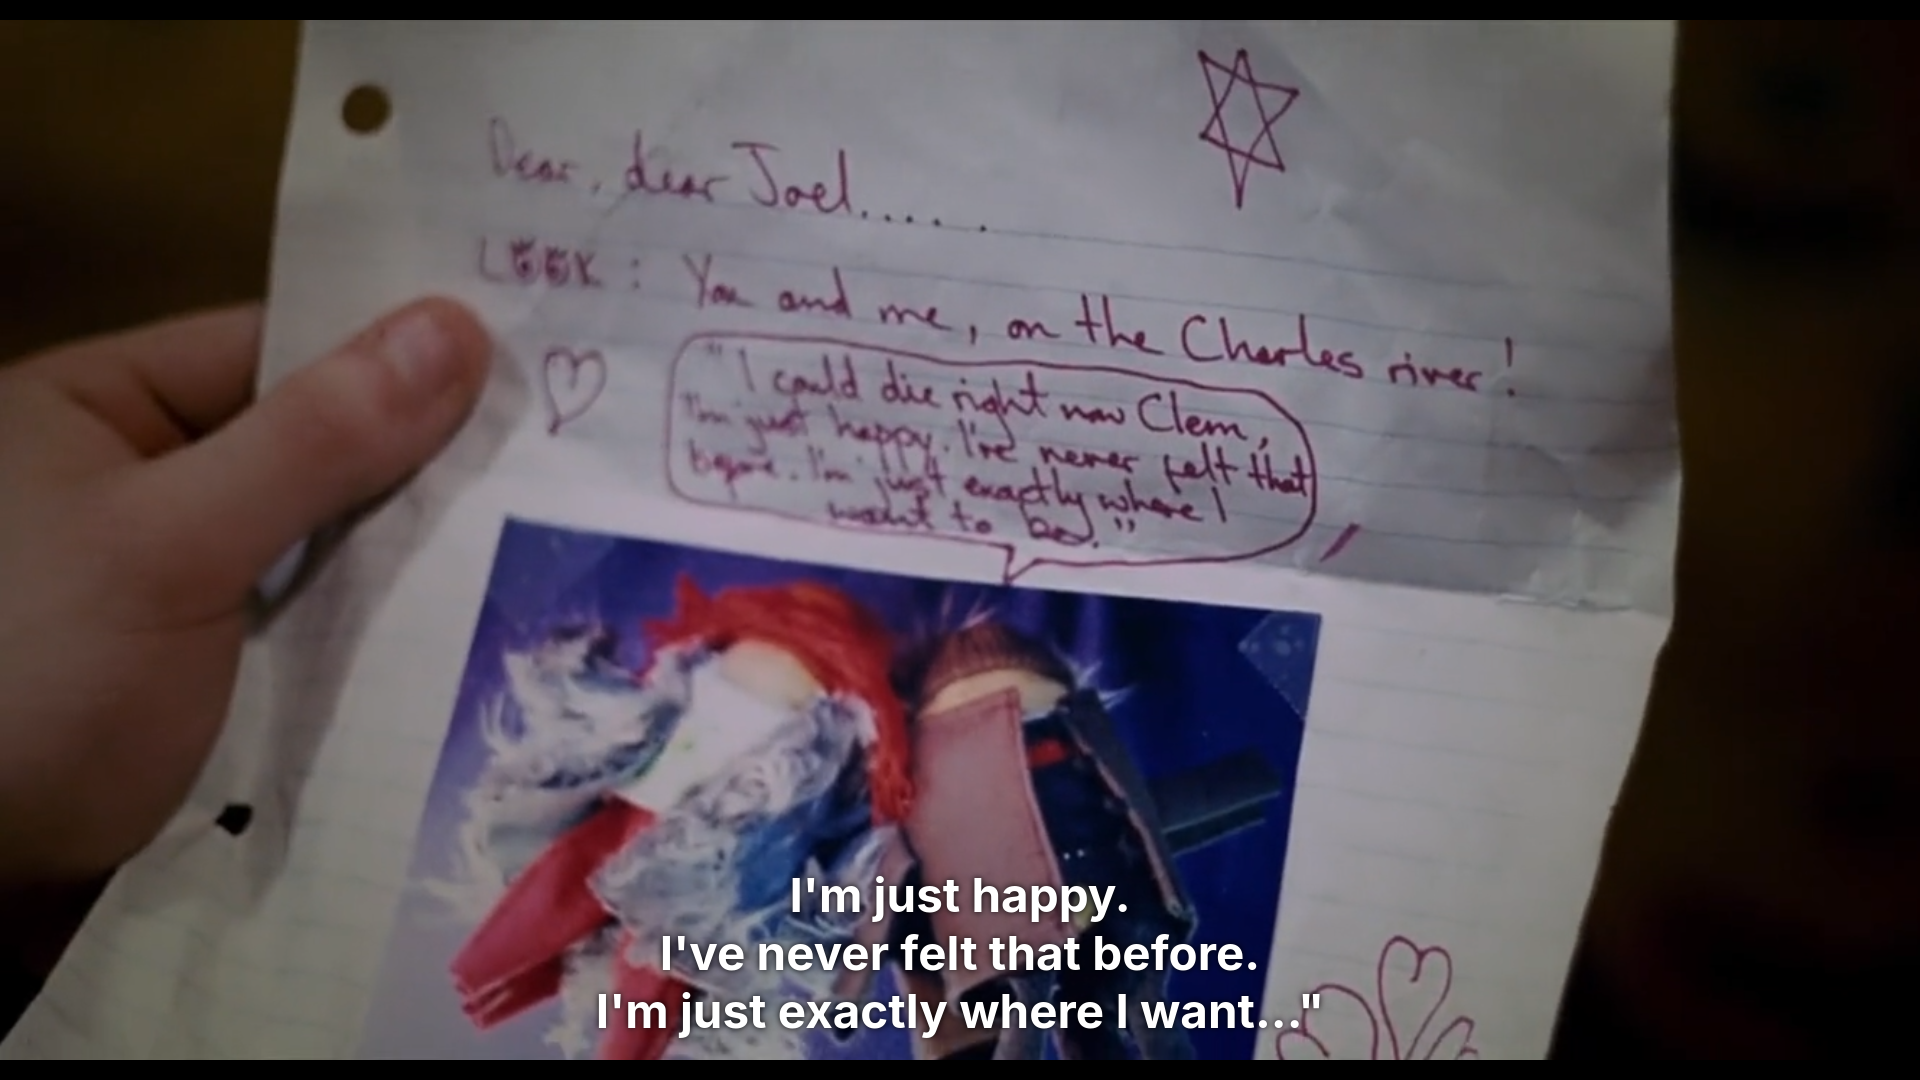 Dear, dear Joel.....
LOOK: You and me, on the Charles river!
"I could die right now Clem,
I'm just happy. I've never felt that
before. I'm just exactly where I
want to be."
I'm just happy.
I've never felt that before.
I'm just exactly where I want..."